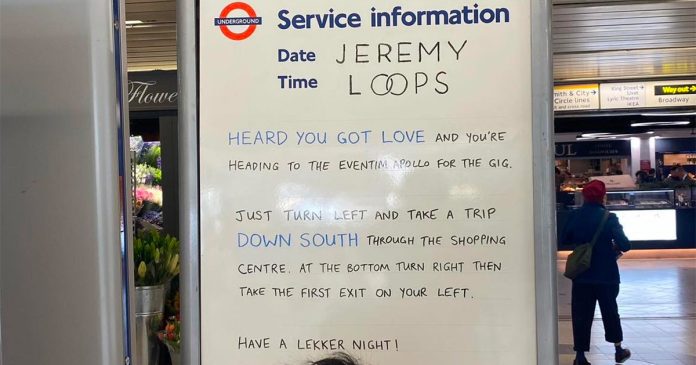 UNDERGROUND
Service information
Date JEREMY
Time LOOPS
HEARD YOU GOT LOVE AND YOU'RE
HEADING TO THE EVENTIM APOLLO FOR THE GIG.
JUST TURN LEFT AND TAKE A TRIP
DOWN SOUTH THROUGH THE SHOPPING
CENTRE. AT THE BOTTOM TURN RIGHT THEN
TAKE THE FIRST EXIT ON YOUR LEFT.
HAVE A LEKKER NIGHT!
Flowe
mith & City
Circle lines
King Street
Lyric Theatre
IKEA
Way out
Broadway